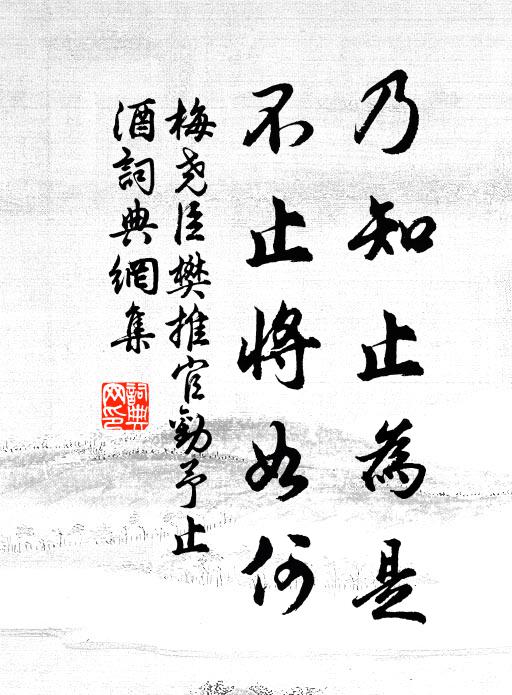 乃知止為是
不止將如何
梅堯臣樊推官勸予止
酒詞典網集
詞典
网印